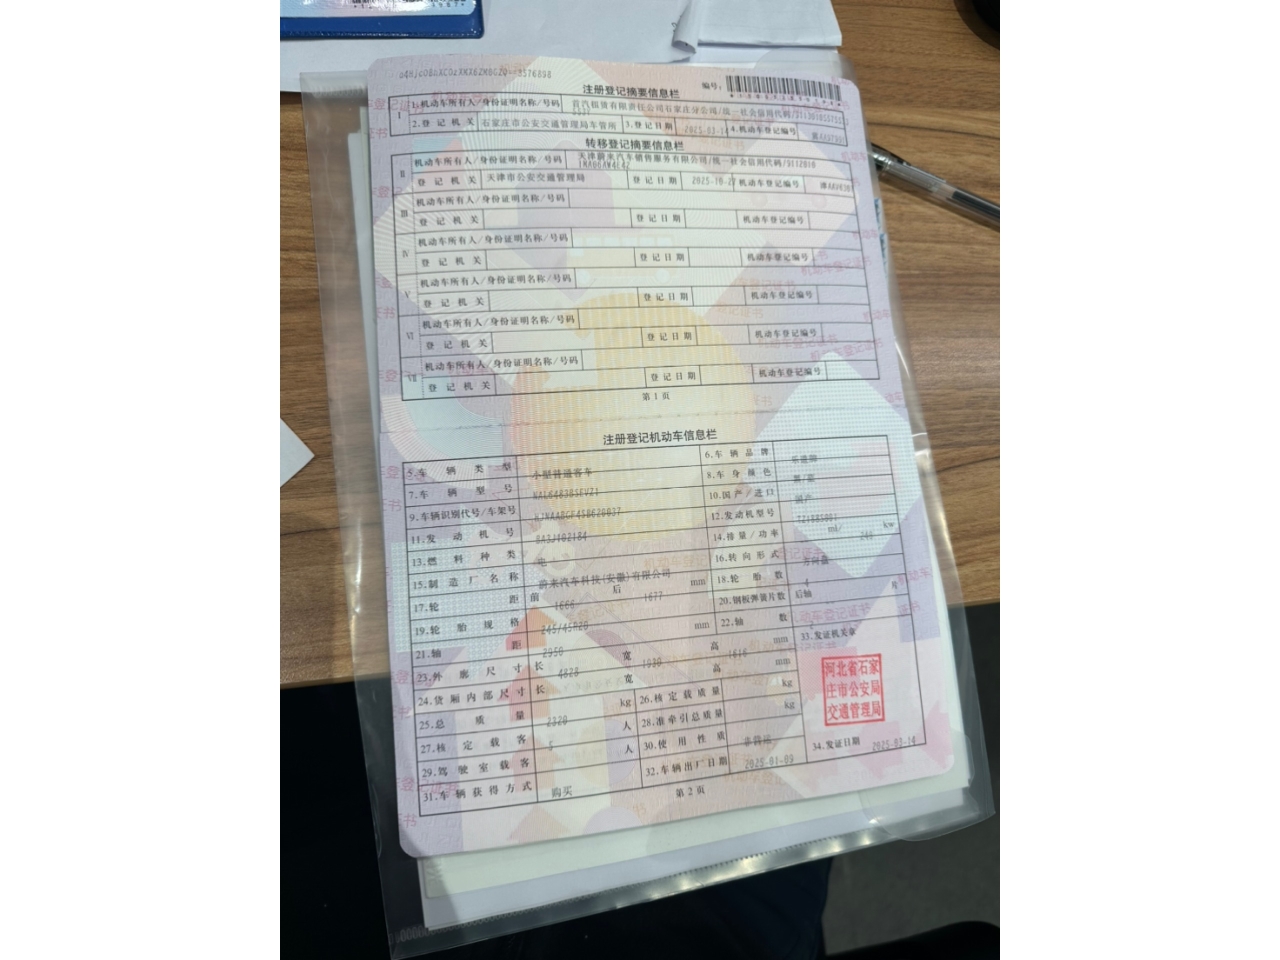 注册登记摘要信息栏
编号:
Ⅰ 1.机动车所有人/身份证明名称/号码 首汽租赁有限责任公司石家庄分公司/统一社会信用代码
2.登记机关 石家庄市公安交通管理局车管所 3.登记日期 2025-03-14 4.机动车登记编号
转移登记摘要信息栏
Ⅱ 机动车所有人/身份证明名称/号码 天津蔚来汽车销售服务有限公司/统一社会信用代码
登记机关 天津市公安交通管理局 登记日期 2025-10-27 机动车登记编号
Ⅲ 机动车所有人/身份证明名称/号码
登记机关 登记日期 机动车登记编号
Ⅳ 机动车所有人/身份证明名称/号码
登记机关 登记日期 机动车登记编号
Ⅴ 机动车所有人/身份证明名称/号码
登记机关 登记日期 机动车登记编号
Ⅵ 机动车所有人/身份证明名称/号码
登记机关 登记日期 机动车登记编号
Ⅶ 机动车所有人/身份证明名称/号码
登记机关 登记日期 机动车登记编号
第1页
注册登记机动车信息栏
5.车辆类型 小型普通客车 6.车辆品牌 乐道牌
7.车辆型号 NAL6483BSEVZ1 8.车身颜色
9.车辆识别代号/车架号 10.国产/进口 国产
11.发动机号 12.发动机型号
13.燃料种类 电 14.排量/功率 ml/ 240 kw
15.制造厂名称 蔚来汽车科技(安徽)有限公司 16.转向形式 方向盘
17.轮距 前 1666 后 1677 mm 18.轮胎数 4
19.轮胎规格 245/45R20 20.钢板弹簧片数 后轴 片
21.轴距 2950 mm 22.轴数 2
23.外廓尺寸 长 4828 宽 1930 高 1616 mm 33.发证机关章
24.货厢内部尺寸 长 宽 高 mm
25.总质量 2320 kg 26.核定载质量 kg
27.核定载客 5 人 28.准牵引总质量 kg
29.驾驶室载客 人 30.使用性质 非营运
31.车辆获得方式 购买 32.车辆出厂日期 2025-01-09
河北省石家
庄市公安局
交通管理局
34.发证日期 2025-03-14
第2页